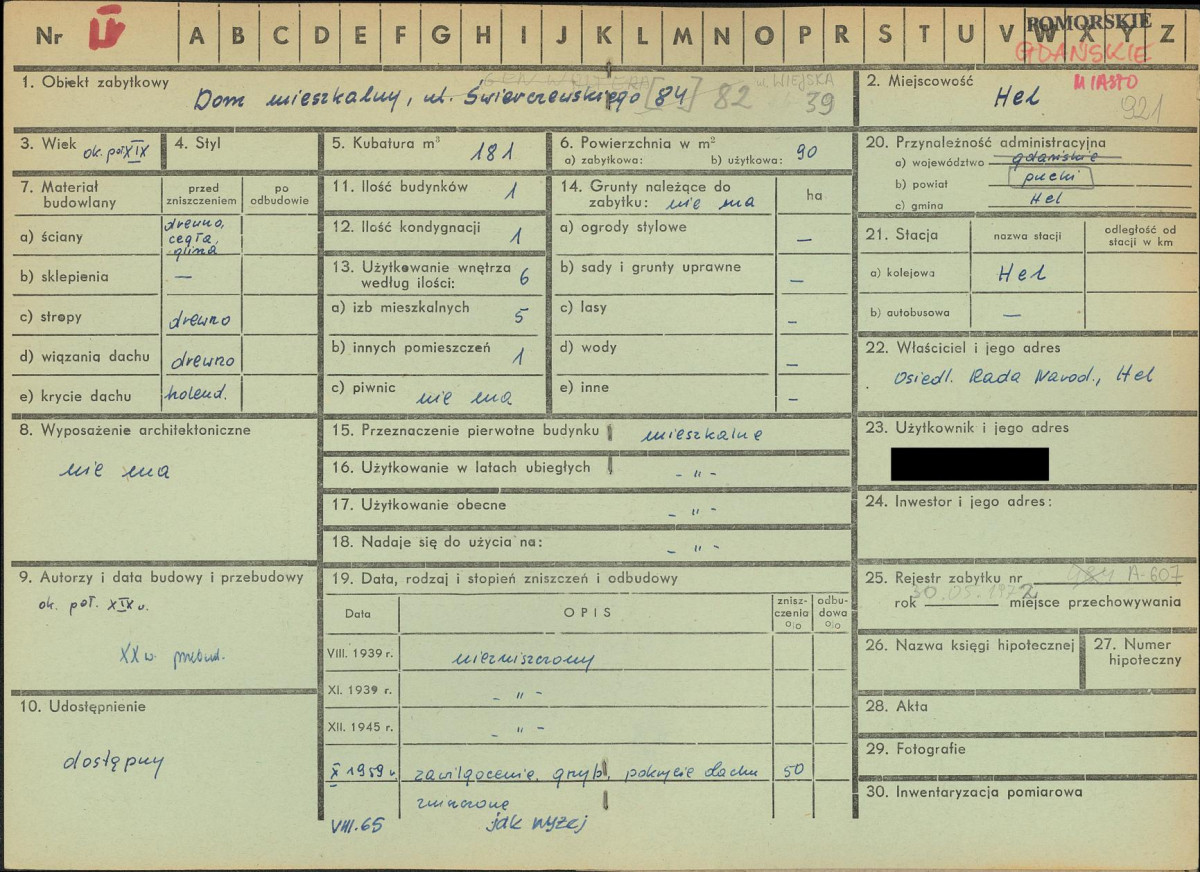 POMORSKIE
Nr II A B C D E F G H I J K L M N O P R S T U V W X Y Z
GDAŃSKIE
MIASTO
GEN. WALTERA ul. WIEJSKA
1. Obiekt zabytkowy Dom mieszkalny, ul. Świerczewskiego [84] 82 39
2. Miejscowość Hel 921
3. Wiek ok. poł XIX
4. Styl
5. Kubatura m³ 181
6. Powierzchnia w m²
a) zabytkowa: b) użytkowa: 90
7. Materiał budowlany
przed zniszczeniem
po odbudowie
a) ściany drewno, cegła, glina
b) sklepienia —
c) stropy drewno
d) wiązania dachu drewno
e) krycie dachu holend.
8. Wyposażenie architektoniczne
nie ma
9. Autorzy i data budowy i przebudowy
ok. poł. XIX w.
XX w. przebud.
10. Udostępnienie
dostępny
11. Ilość budynków 1
12. Ilość kondygnacji 1
13. Użytkowanie wnętrza
według ilości: 6
a) izb mieszkalnych 5
b) innych pomieszczeń 1
c) piwnic nie ma
14. Grunty należące do
zabytku: nie ma
ha
a) ogrody stylowe —
b) sady i grunty uprawne —
c) lasy —
d) wody —
e) inne —
15. Przeznaczenie pierwotne budynku mieszkalne
16. Użytkowanie w latach ubiegłych - " -
17. Użytkowanie obecne - " -
18. Nadaje się do użycia na: - " -
19. Data, rodzaj i stopień zniszczeń i odbudowy
Data OPIS
znisz-
czenia
o/o
odbu-
dowa
o/o
VIII. 1939 r. niezniszczony
XI. 1939 r. - " -
XII. 1945 r. - " -
X 1959 r. zawilgocenie, grzyb, pokrycie dachu 50
zniszczone
VIII.65 jak wyżej
20. Przynależność administracyjna
a) województwo gdańskie
b) powiat pucki
c) gmina Hel
21. Stacja
nazwa stacji
odległość od
stacji w km
a) kolejowa Hel
b) autobusowa —
22. Właściciel i jego adres
Osiedl. Rada Narod., Hel
23. Użytkownik i jego adres
24. Inwestor i jego adres:
25. Rejestr zabytku nr A-607
30.05.1972
rok miejsce przechowywania
26. Nazwa księgi hipotecznej
27. Numer
hipoteczny
28. Akta
29. Fotografie
30. Inwentaryzacja pomiarowa